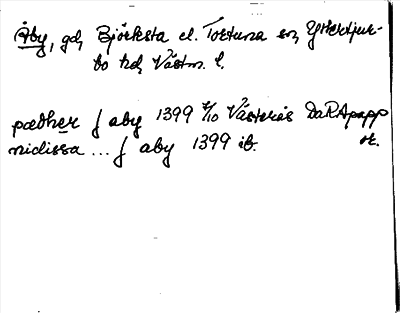 Åby, gd, Björksta el. Tortuna sn, Yttertjur-
bo hd, Västm. l.
pædher j aby 1399 7/10 Västerås DaRApapp
nidissa ... j aby 1399 ib. or.